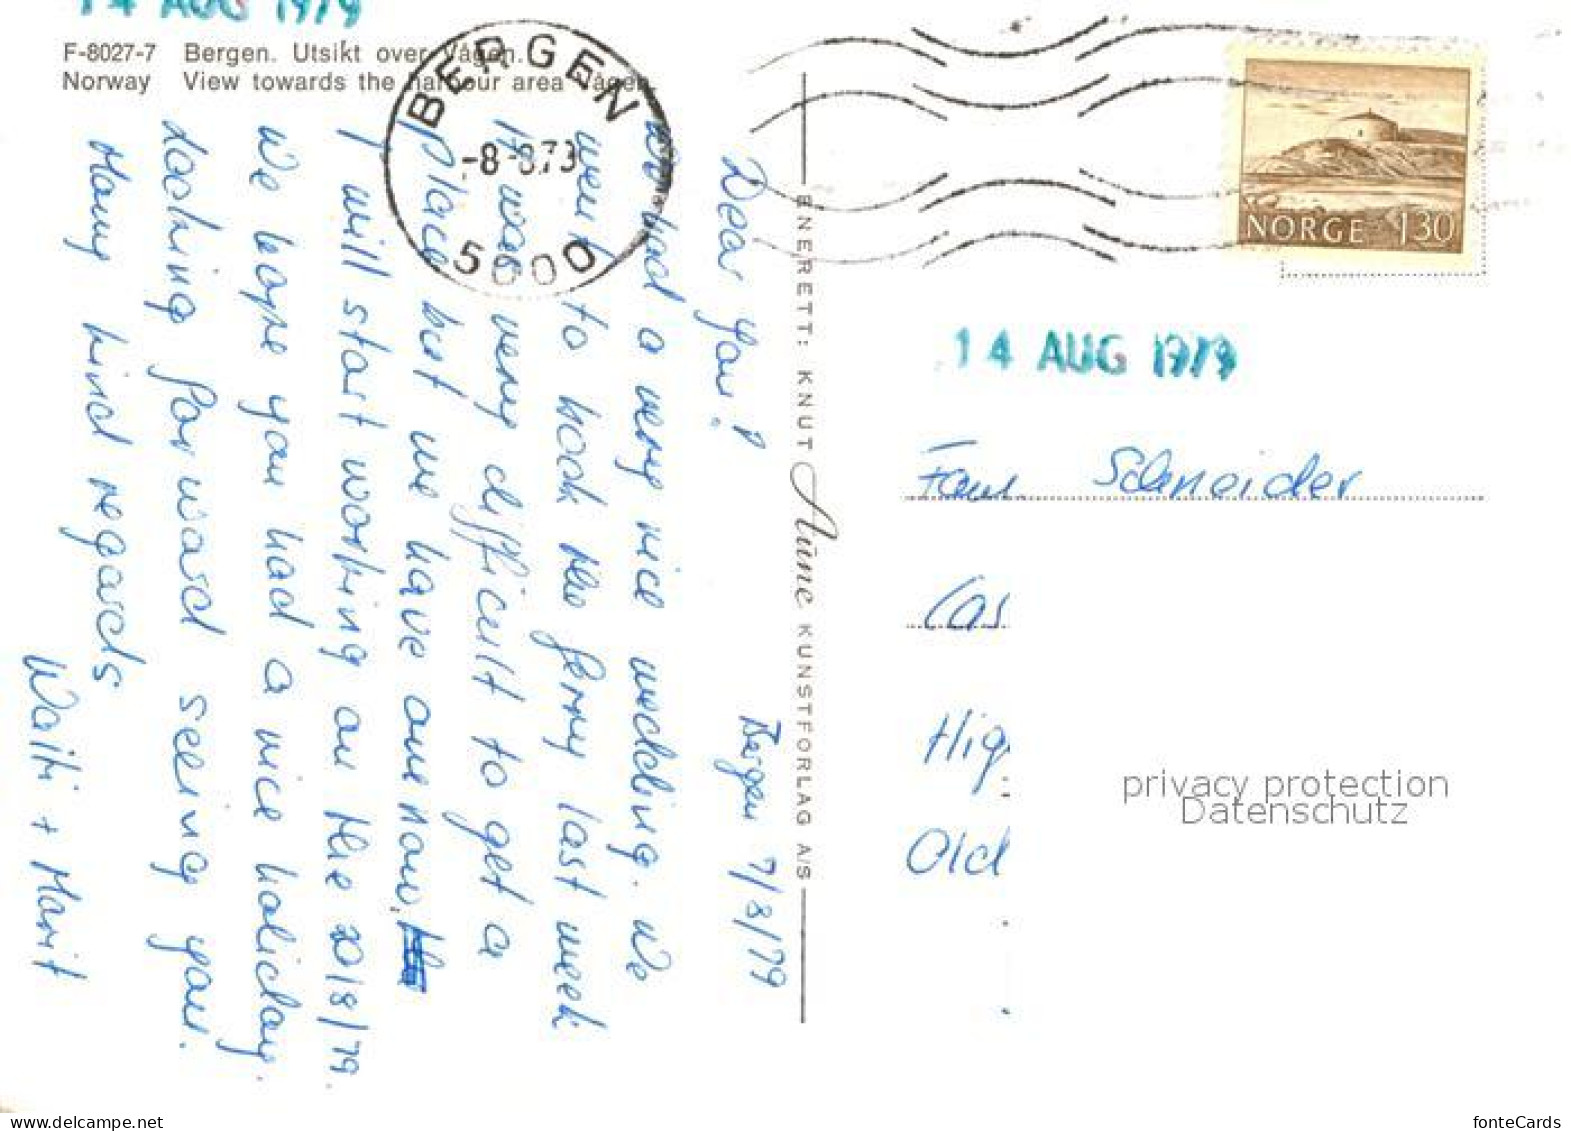 14 AUG 1979
F-8027-7 Bergen. Utsikt over Vågen.
Norway View towards the harbour area Vågen.
BERGEN
-8-8.79
5000
NORGE 130
14 AUG 1979
ENERETT: KNUT Aune KUNSTFORLAG A/S
Bergen 7/8/79
Dear you!
We had a very nice wedding. We
went to book the ferry last week
It was very difficult to get a
place but we have one now,
I will start working on the 20/8/79.
We hope you had a nice holiday.
Looking forward seeing you.
Many kind regards
Walti + Marit
Schneider
Cas
Hig
Old
privacy protection
Datenschutz
www.delcampe.net
fonteCards